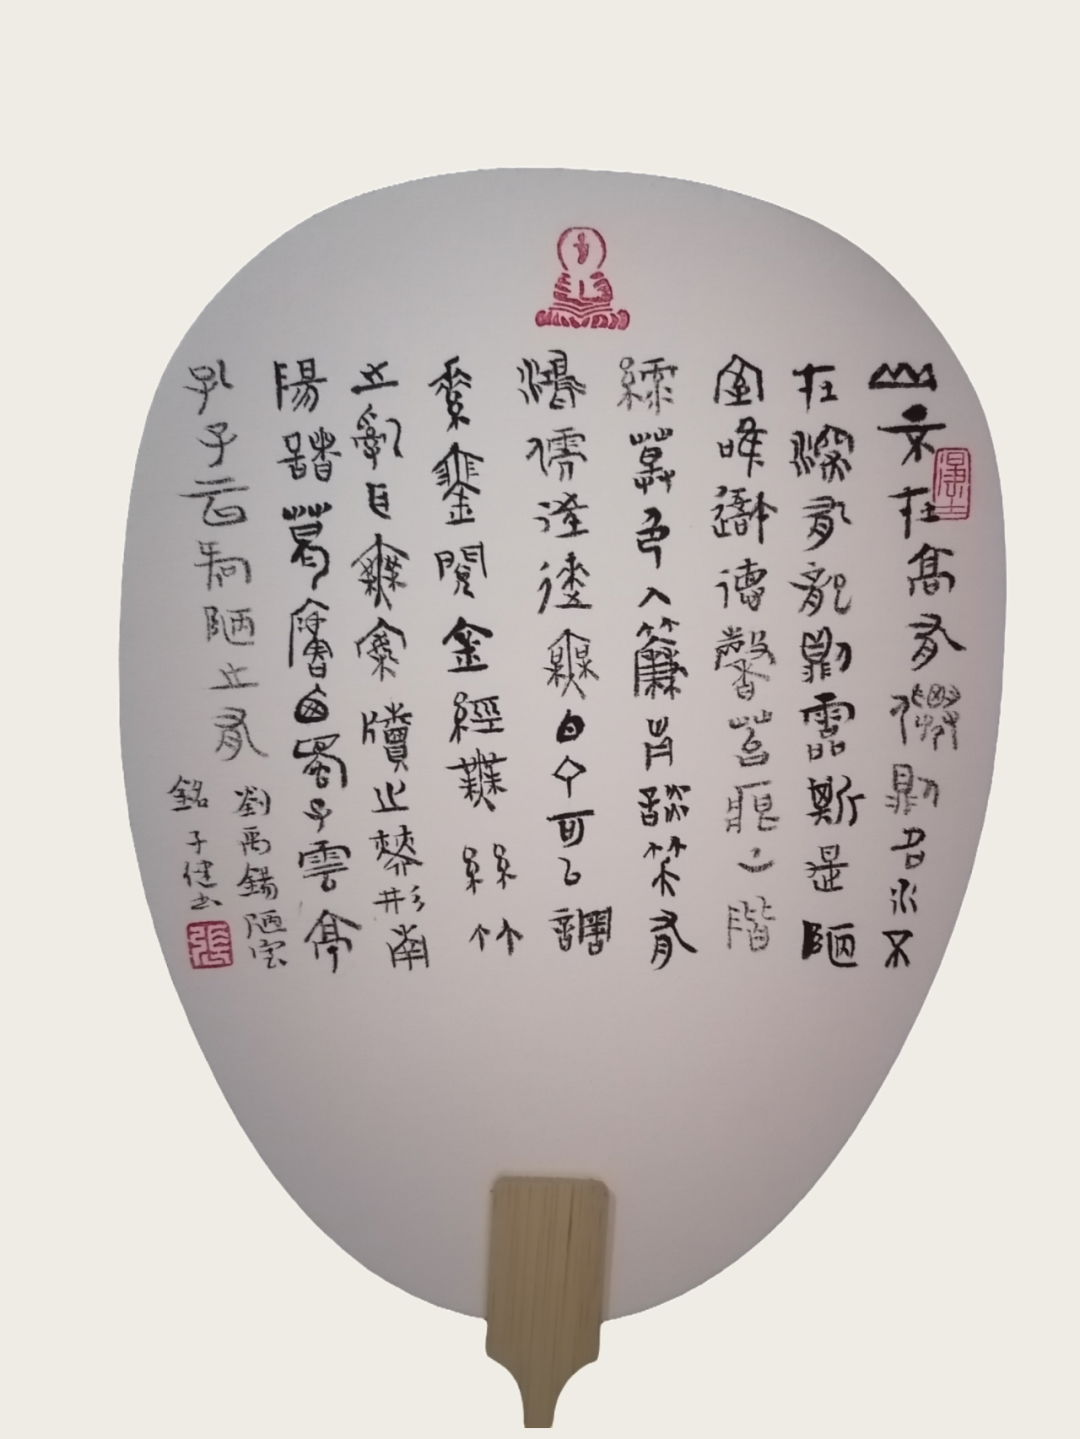 山不在高有僊則名水不
在深有龍則靈斯是陋
室唯吾德馨苔痕上階
綠草色入簾青談笑有
鴻儒往來無白丁可以調
素琴閱金經無絲竹
之亂耳無案牘之勞形南
陽諸葛廬西蜀子雲亭
孔子云何陋之有
劉禹錫陋室
銘 子健書
張